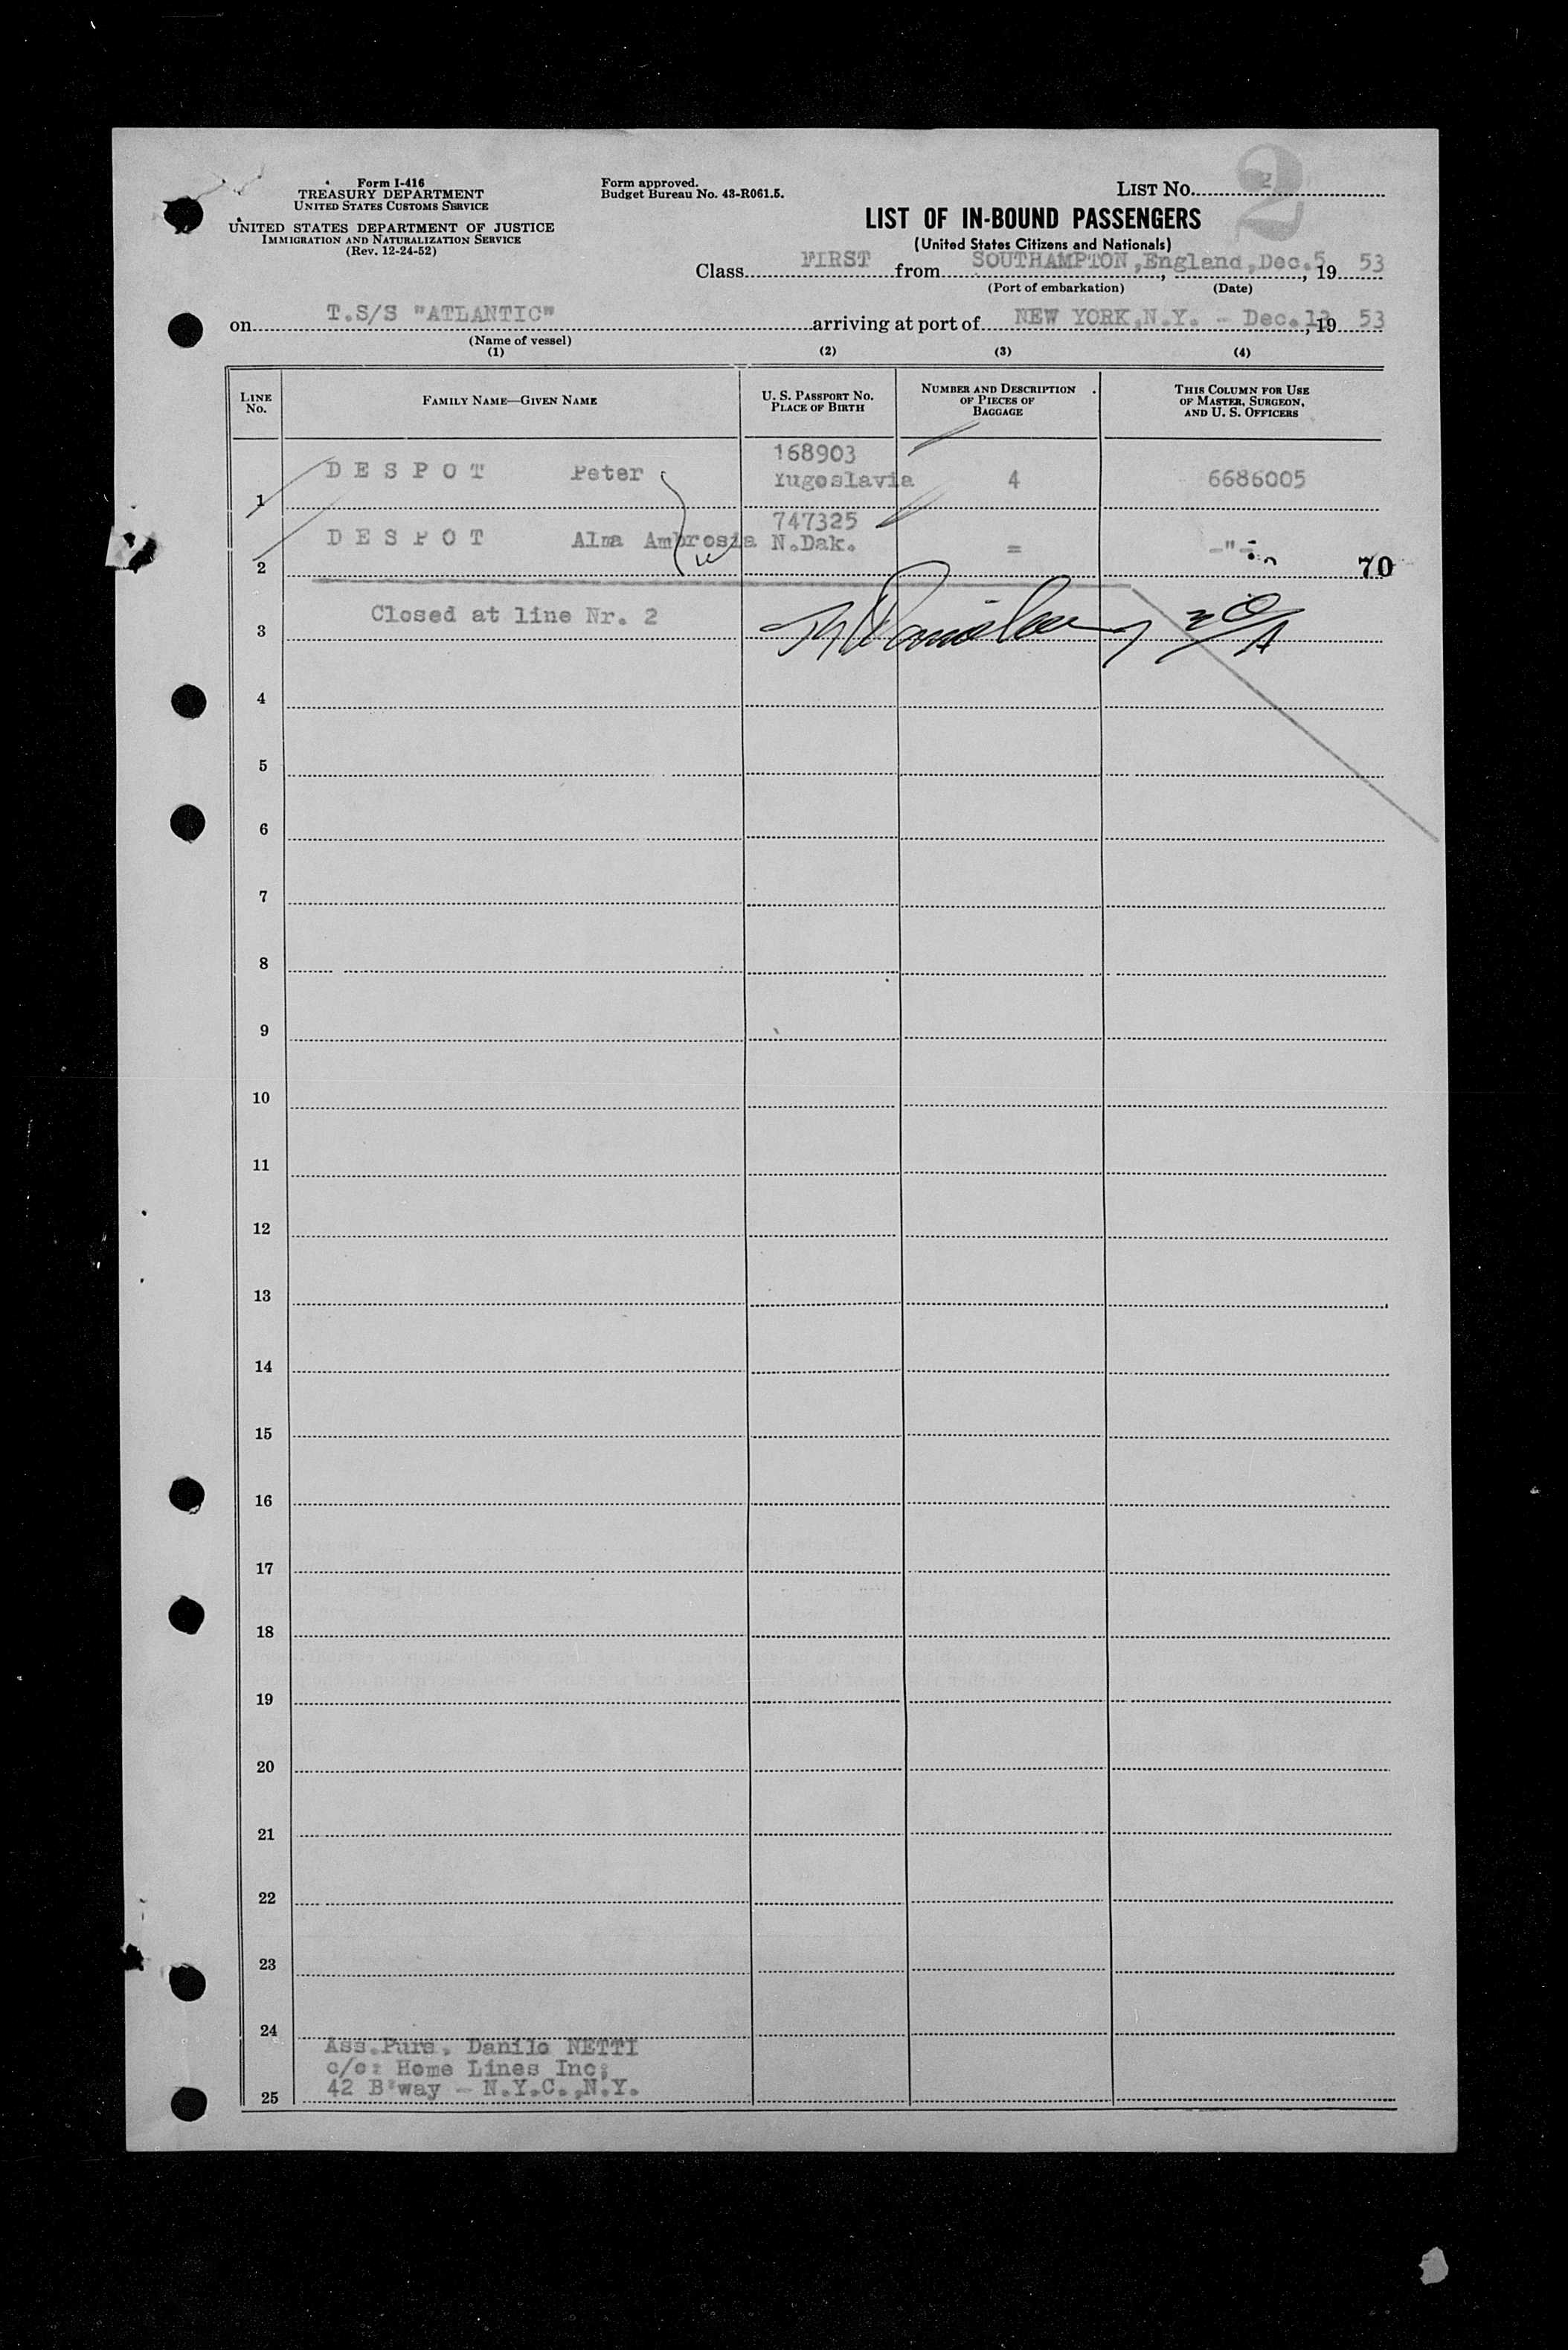 Form I-416
TREASURY DEPARTMENT
UNITED STATES CUSTOMS SERVICE
UNITED STATES DEPARTMENT OF JUSTICE
IMMIGRATION AND NATURALIZATION SERVICE
(Rev. 12-24-52)
Form approved.
Budget Bureau No. 43-R061.5.
LIST No. 2
2
LIST OF IN-BOUND PASSENGERS
(United States Citizens and Nationals)
Class FIRST from SOUTHAMPTON,England,Dec.5, 19 53
(Port of embarkation) (Date)
on T.S/S "ATLANTIC" arriving at port of NEW YORK,N.Y. - Dec.13, 19 53
(Name of vessel)
(1) (2) (3) (4)
LINE No. FAMILY NAME—GIVEN NAME U. S. PASSPORT No. PLACE OF BIRTH NUMBER AND DESCRIPTION OF PIECES OF BAGGAGE THIS COLUMN FOR USE OF MASTER, SURGEON, AND U. S. OFFICERS
168903
1 DESPOT Peter Yugoslavia 4 6686005
747325
2 DESPOT Alma Ambrosia N.Dak. = -"-
70
3 Closed at line Nr. 2
4
5
6
7
8
9
10
11
12
13
14
15
16
17
18
19
20
21
22
23
24
Ass.Purs. Danilo NETTI
c/o: Home Lines Inc;
25 42 B'way - N.Y.C.,N.Y.